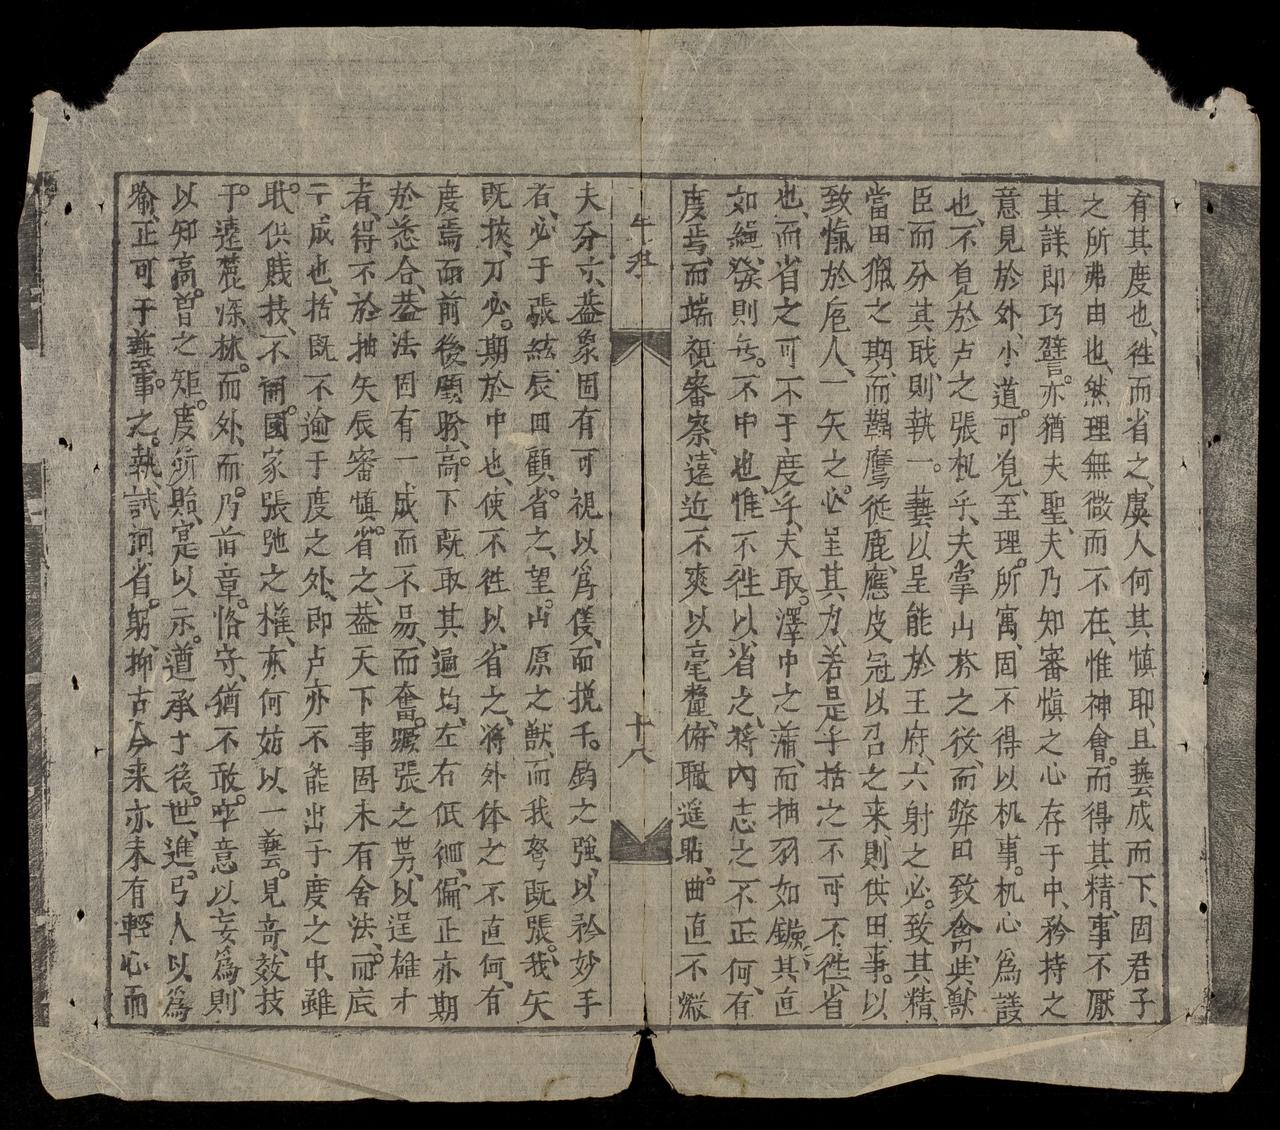 有其度也、徃而省之、虞人何其慎耶、且藝成而下、固君子
之所弗由也、然理無微而不在、惟神會。而得其精、事不厭
其詳、即巧譬。亦猶夫聖、夫乃知審慎之心存于中、矜持之
意見於外、小道。可見、至理。所寓、固不得以机事。机心為議
也、不見於卢之張机乎、夫掌山林之役、而弊田致禽、共獸
臣而分其職、則執一。藝以呈能於王府、六射之必。致其精
當田獵之期、而鞲鷹從鹿、應皮冠以召之来、則供田事。以
致慎於庖人、一矢之。必呈其力、若是乎括之不可不徃、省
也、而省之可不于度乎、夫取。澤中之蒲、而抽羽如鏃、其直
如繩、發則無。不中也、惟不徃以省之、將內志之不正何、有
度焉、而端視審察、遠近不爽以毫釐、俯瞰遥點、曲直不
十八
夫分寸、葢象固有可視以為儀、而挽千。鈞之強、以矜妙手
者、必于張絃、辰回顧。省之、望。山原之獸、而我弩既張。我矢
既挾、刀必。期於中也、使不徃以省之、將外体之不直何、有
度焉、而前後顧盼、高下既取其遍均、左右低徊、偏正亦期
於悉合、葢法固有一成而不易、而奮。躡張之勇、以逞雄才
者、得不於抽矢辰審慎。省之、葢天下事固未有舍法、而底
于成也、括既不逾于度之外、即卢亦不能出于度之中、雖
耿。供賤技、不關國家張弛之權、亦何妨以一藝。見竒、效技
于。遠麓深。林。而外、而。乃首章。恪守、猶不敢。卒意以妄為、則
以知高。曾之矩。度所貽、寔以示。遵承于後。世、進。弓人以為
喻、正可于藝事。之。執試河省。躬、抑古今来亦未有輕心而